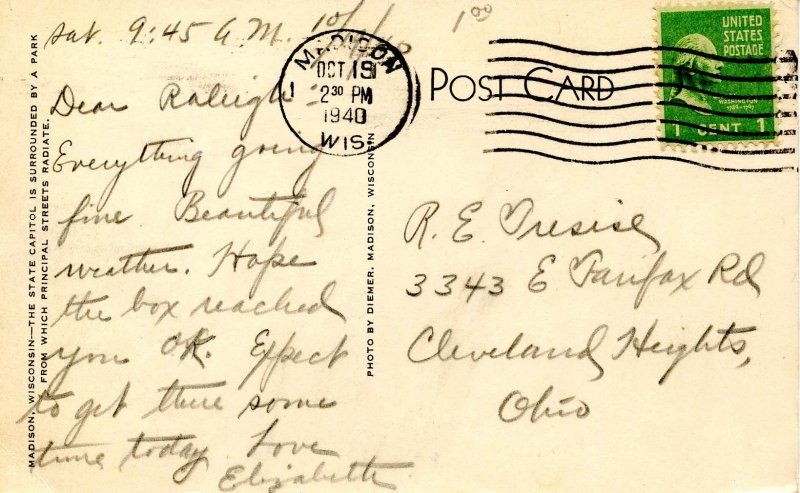 Sat. 9:45 A M. 10/
1⁰⁰
Dear Raleigh
Everything going
fine. Beautiful
weather. Hope
the box reached
you OK. Expect
to get there some
time today. Love
Elizabeth
MADISON, WISCONSIN—THE STATE CAPITOL IS SURROUNDED BY A PARK
FROM WHICH PRINCIPAL STREETS RADIATE.
PHOTO BY DIEMER, MADISON, WISCONSIN
MADISON
OCT 19
1
2 30 PM
1940
WIS.
POST CARD
UNITED
STATES
POSTAGE
WASHINGTON
1789-1797
1 CENT 1
R. E. Tresise
3343 E Fairfax Rd
Cleveland Heights,
Ohio